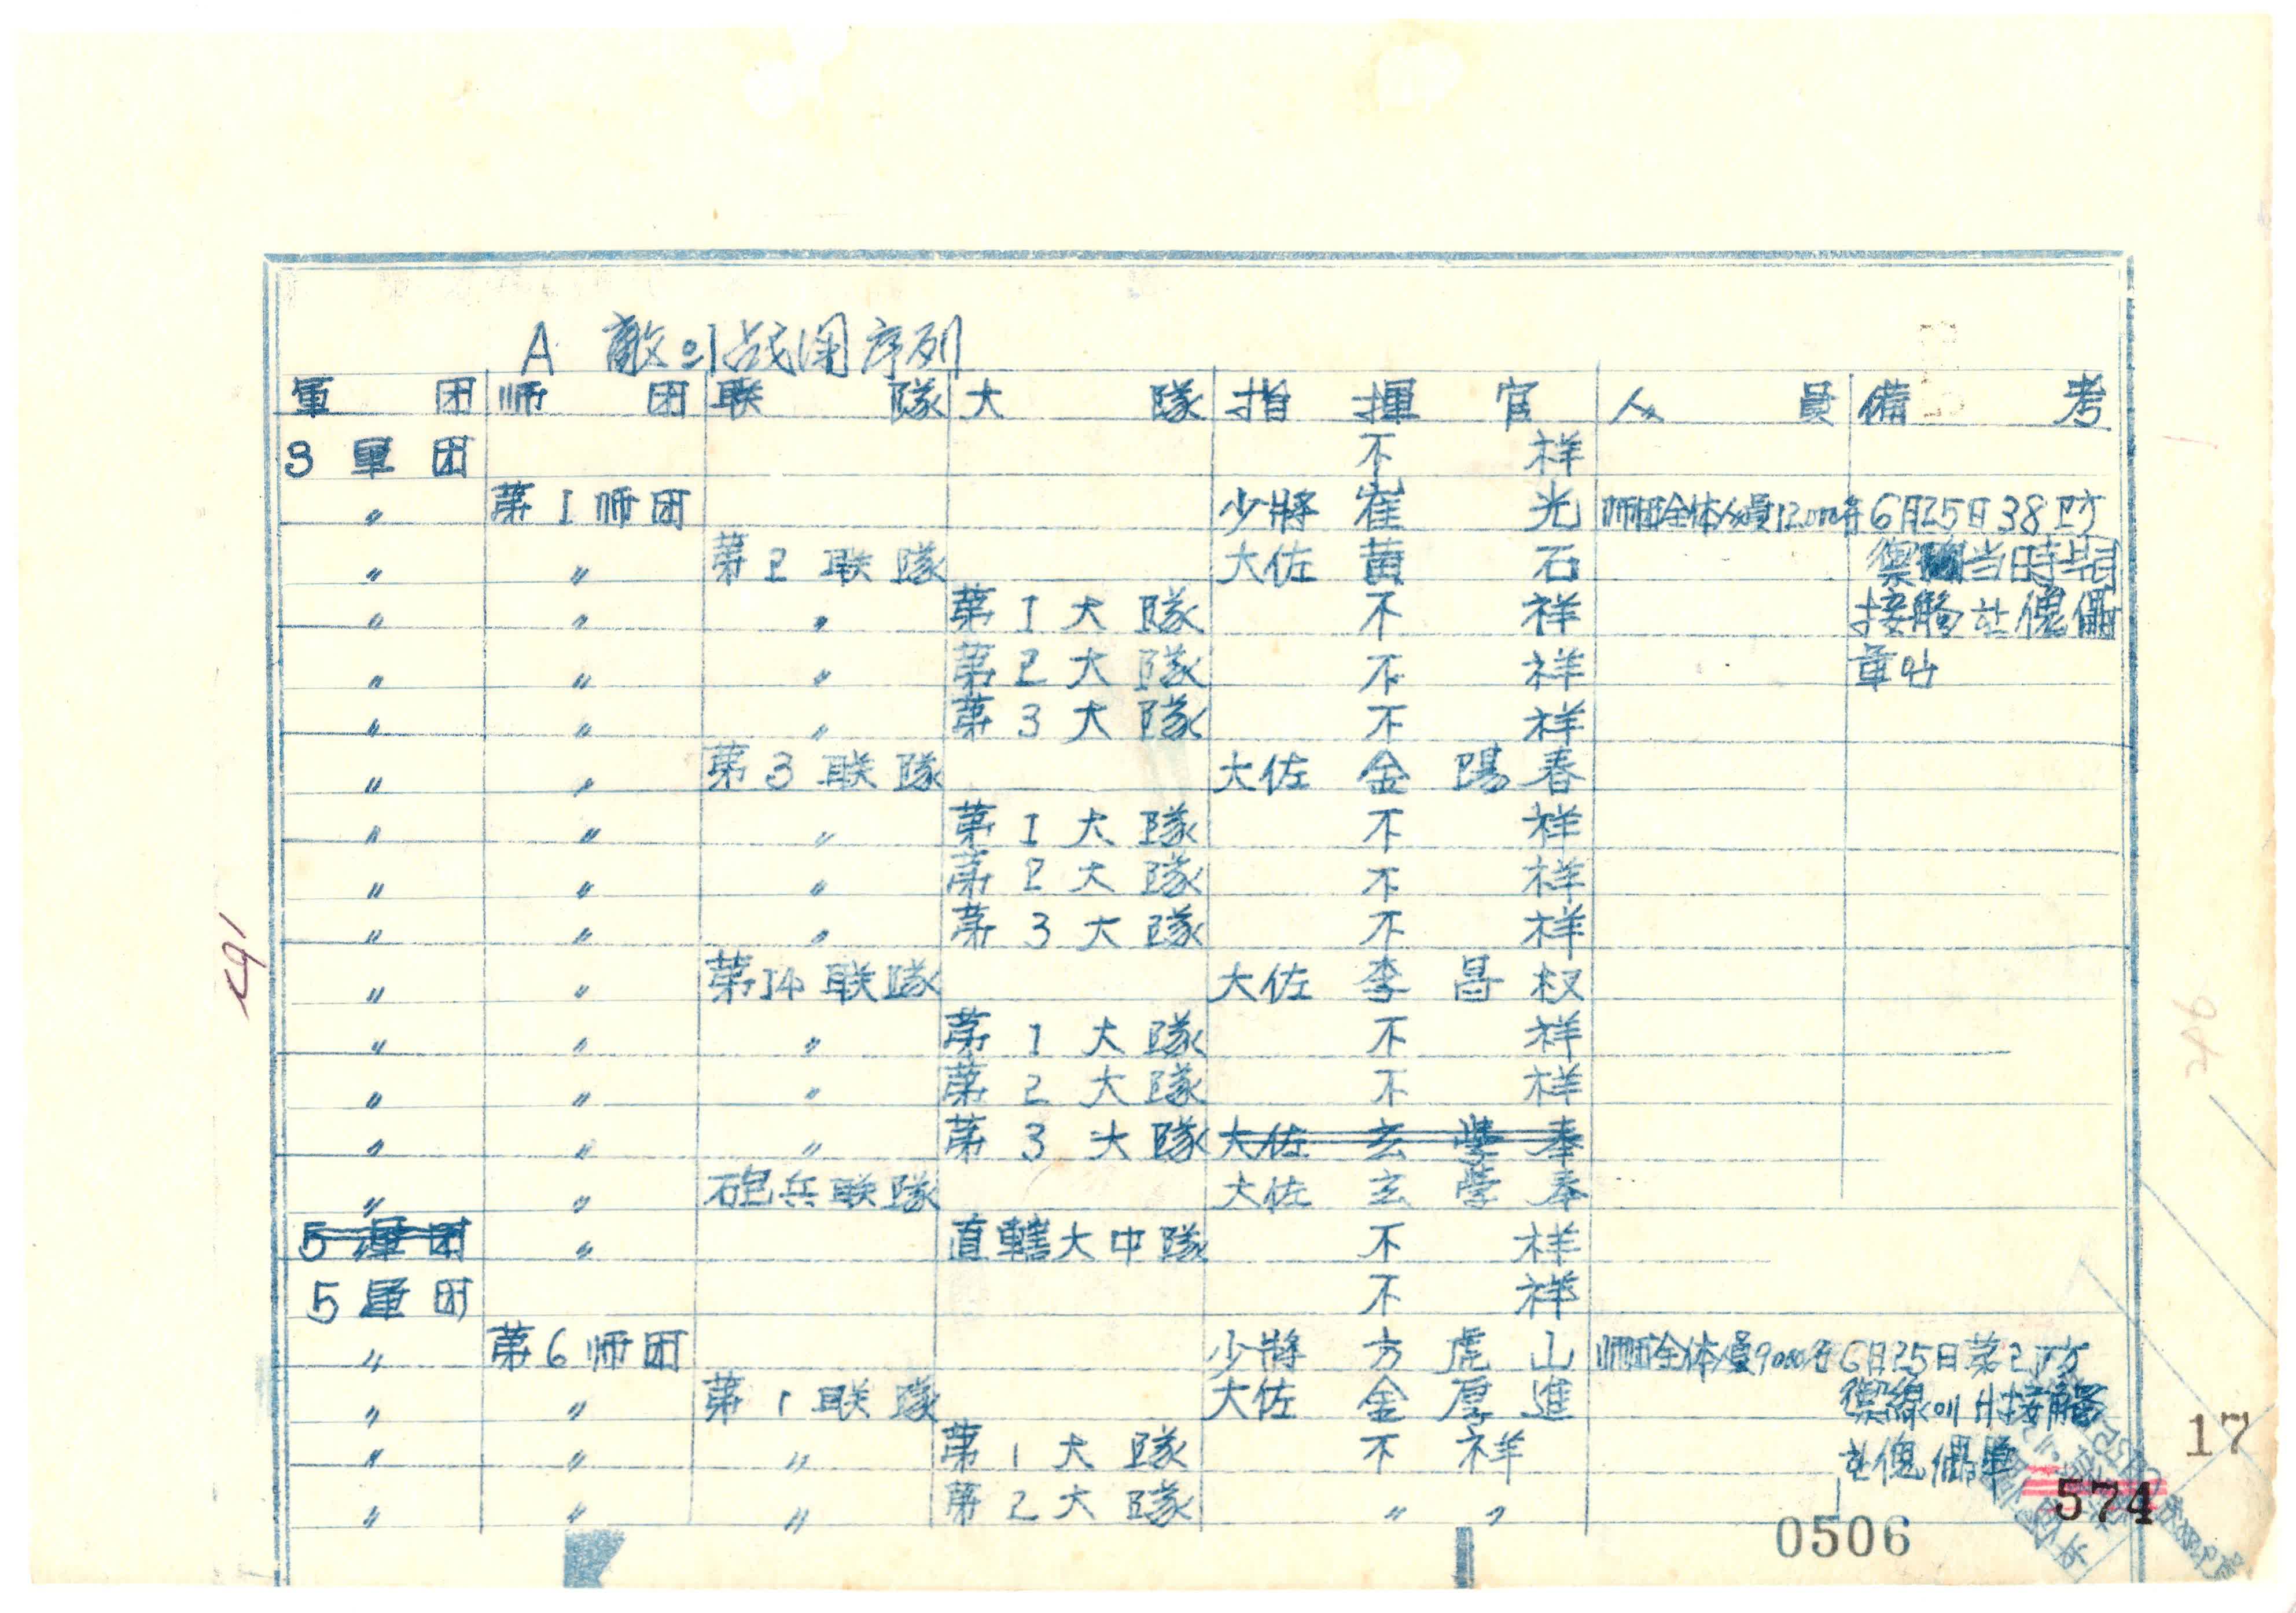 A 敵의 战闘序列
軍团 师团 联隊 大隊 指揮官 人員 備考
3軍团 不祥
〃 第1师団 少將 崔光 师団全体人員12,000名 6月25日38더방
〃 〃 第2联隊 大佐 黄石 禦 当時부터
〃 〃 〃 第1大隊 不祥 接触한 傀儡
〃 〃 〃 第2大隊 不祥 軍ba
〃 〃 〃 第3大隊 不祥
〃 〃 第3联隊 大佐 金陽春
〃 〃 〃 第1大隊 不祥
〃 〃 〃 第2大隊 不祥
〃 〃 〃 第3大隊 不祥
〃 〃 第14联隊 大佐 李昌权
〃 〃 〃 第1大隊 不祥
〃 〃 〃 第2大隊 不祥
〃 〃 〃 第3大隊 大佐 玄學奉
〃 〃 砲兵联隊 大佐 玄學奉
5軍团 〃 直轄大中隊 不祥
5軍团 不祥
〃 第6师団 少將 方虎山 师団全体人員9000名 6月25日第2防
〃 〃 第1联隊 大佐 金厚進 禦線에서 接触
〃 〃 〃 第1大隊 不祥 한 傀儡軍
〃 〃 〃 第2大隊 〃 〃
17
574
0506